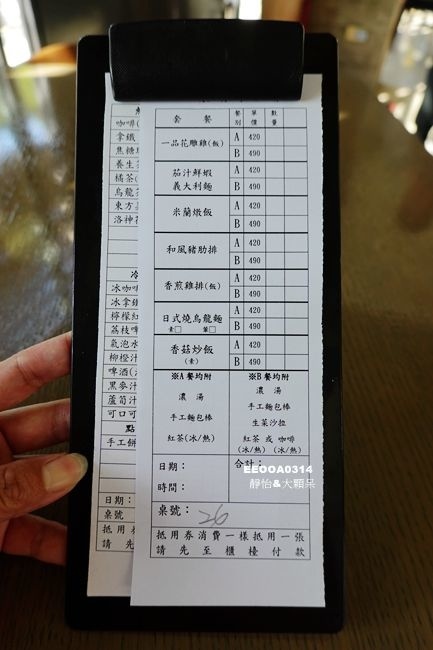 套 餐 餐別 單價 數量
一品花雕雞(飯) A 420
B 490
茄汁鮮蝦 義大利麵 A 420
B 490
米蘭燉飯 A 420
B 490
和風豬肋排 A 420
B 490
香煎雞排(飯) A 420
B 490
日式燒烏龍麵 A 420
素□ 葷□ B 490
香菇炒飯 A 420
(素) B 490
※A餐均附
濃 湯
手工麵包棒
紅茶(冰/熱)
※B餐均附
濃 湯
手工麵包棒
生菜沙拉
紅茶 或 咖啡
(冰/熱) (冰/熱)
日期：
合計：
時間：
桌號： 26
抵用券消費一樣抵用一張
請先至櫃檯付款
咖啡(
拿鐵
焦糖
養生
橘茶(
烏龍茶
東方
洛神
冷
冰咖啡
冰拿鐵
檸檬紅
荔枝
氣泡水
柳橙汁
啤酒(
黑麥汁
蘆筍汁
可口可
點
手工餅
日期：
桌號
抵用券
請先
EEOOA0314
靜怡&大顆呆